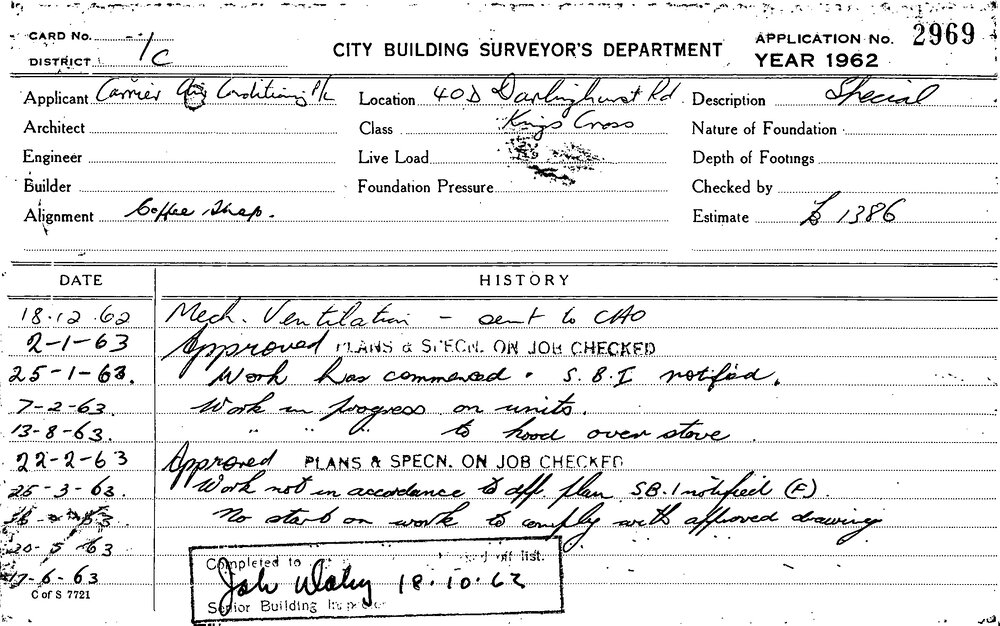 CARD No. -/
DISTRICT C
CITY BUILDING SURVEYOR'S DEPARTMENT
APPLICATION No. 2969
YEAR 1962
Applicant Carrier Air Conditioning P/L
Location 40D Darlinghurst Rd.
Kings Cross
Description Special
Architect
Class
Nature of Foundation
Engineer
Live Load
Depth of Footings
Builder
Foundation Pressure
Checked by
Alignment Coffee Shop.
Estimate £ 1386
DATE HISTORY
18.12.62 Mech. Ventilation - sent to CHO
2-1-63 Approved PLANS & SPECN. ON JOB CHECKED
25-1-63. Work has commenced. S.B.I notified.
7-2-63. Work in progress on units.
13-8-63. " " " to hood over stove
22-2-63 Approved PLANS & SPECN. ON JOB CHECKED
25-3-63. Work not in accordance to app plan SB.I notified (F).
No start on work to comply with approved drawing
20-5-63
17-6-63
Completed to off list.
18.10.63
Senior Building Inspector
C of S 7721